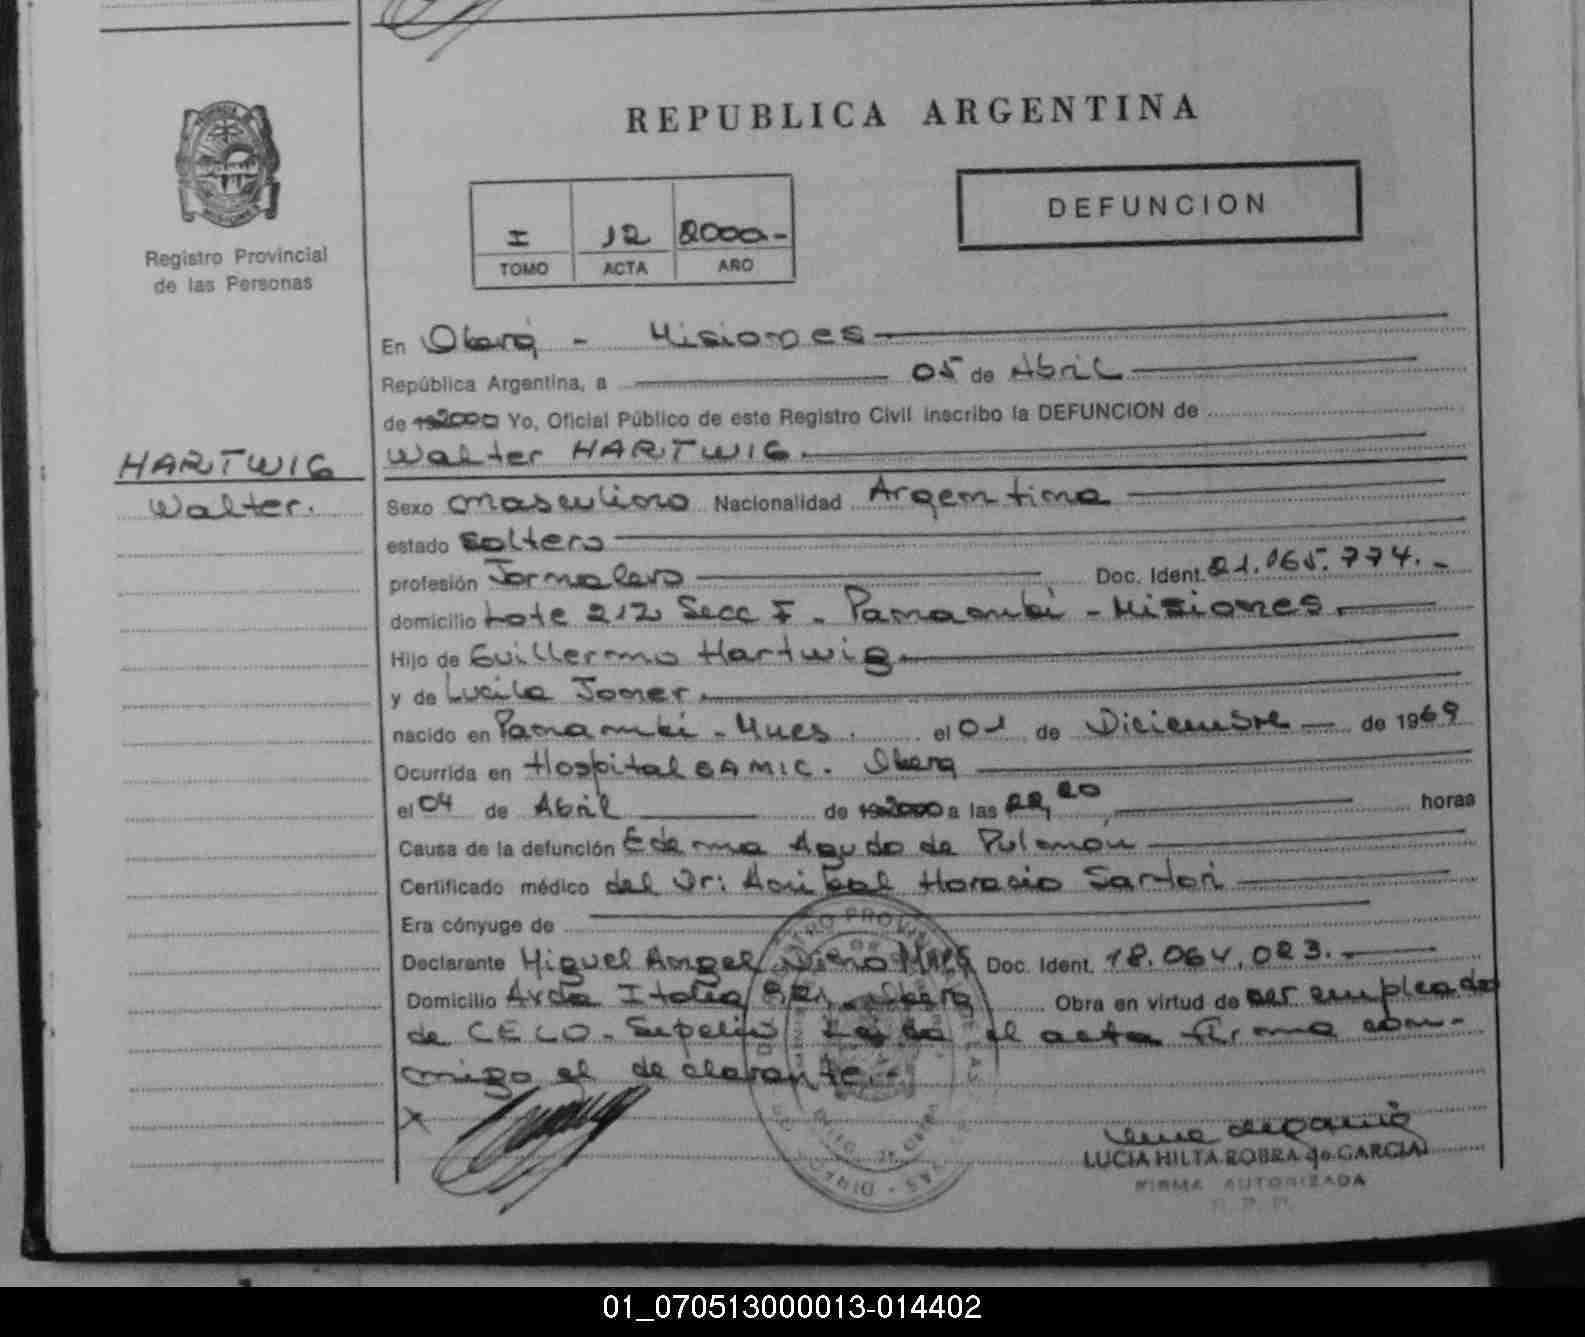 REPUBLICA ARGENTINA
I 12 2000-
TOMO ACTA AÑO
DEFUNCION
Registro Provincial
de las Personas
En Oberá - Misiones
República Argentina, a 05 de Abril
de 2000 Yo, Oficial Público de este Registro Civil inscribo la DEFUNCION de
Walter HARTWIG.
HARTWIG
Walter.
Sexo masculino Nacionalidad Argentina
estado soltero
profesión Jornalero Doc. Ident. 21.065.774.-
domicilio Lote 212 Secc I - Panambí - Misiones.
Hijo de Guillermo Hartwig.
y de Lucila Joner.
nacido en Panambí - Mnes. el 01 de Diciembre de 1969
Ocurrida en Hospital SAMIC. Oberá
el 04 de Abril de 2000 a las 22,20 horas
Causa de la defunción Edema Agudo de Pulmón
Certificado médico del Dr: Anibal Horacio Sartori
Era cónyuge de
Declarante Miguel Angel Doc. Ident. 18.064.023.-
Domicilio Avda Italia Oberá Obra en virtud de ser empleado
de CELO - Sepelio Leída el acta firma con-
migo el declarante.-
X
LUCIA HILTA ROBRA de GARCIA
FIRMA AUTORIZADA
R. P. P.
01_070513000013-014402